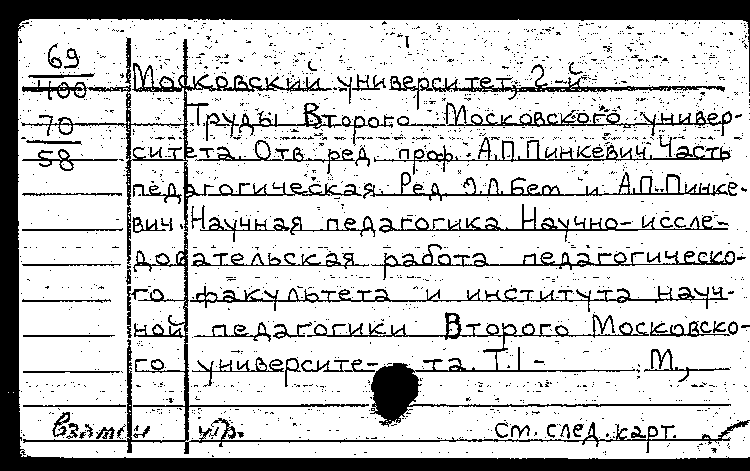 69
400
70
58
Московский университет, 2-й
Труды Второго Московского универ-
ситета. Отв. ред. проф. А.П.Пинкевич. Часть
педагогическая. Ред. Э.Л.Бем и А.П.Пинке-
вич. Научная педагогика. Научно-иссле-
довательская работа педагогическо-
го факультета и института науч-
ной педагогики Второго Московско-
го университе- та. Т.1- М.,
взамен утр. см. след. карт.